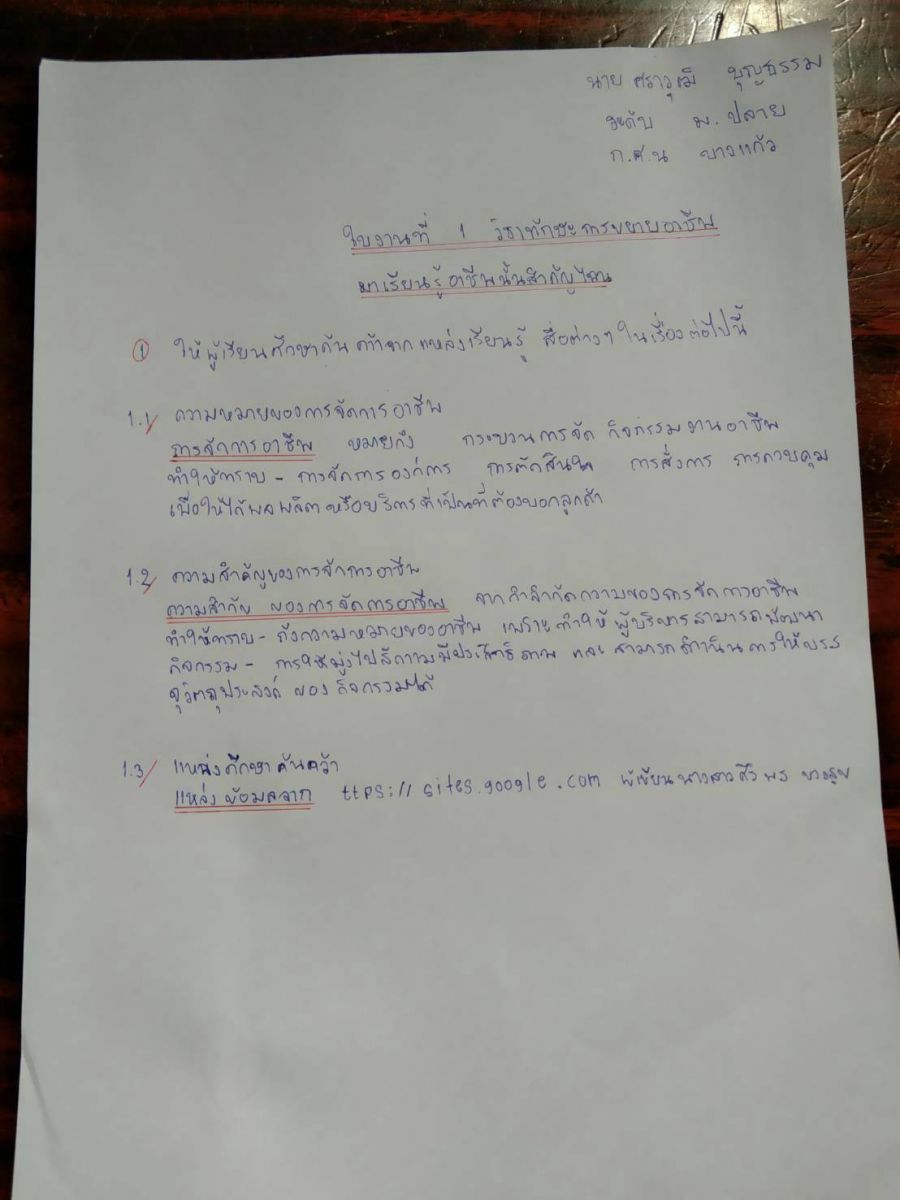 นาย ศราวุฒิ บุญธรรม
ระดับ ม.ปลาย
ก.ศ.น บางแก้ว
ใบงานที่ 1 วิชาทักษะการขยายอาชีพ
มาเรียนรู้อาชีพนั้นสำคัญไฉน
① ให้ผู้เรียนศึกษาค้นคว้าจากแหล่งเรียนรู้ สื่อต่างๆ ในเรื่องต่อไปนี้
1.1/ ความหมายของการจัดการอาชีพ
การจัดการอาชีพ หมายถึง กระบวนการจัด กิจกรรมงานอาชีพ
ทำให้ทราบ - การจัดการองค์การ การตัดสินใจ การสั่งการ การควบคุม
เพื่อให้ได้ผลผลิตหรือบริการที่เป็นที่ต้องของลูกค้า
1.2/ ความสำคัญของการจัดการอาชีพ
ความสำคัญ ของการจัดการอาชีพ จากคำจำกัดความของการจัดการอาชีพ
ทำให้ทราบ - ถึงความหมายของอาชีพ เพราะทำให้ ผู้บริหารสามารถพัฒนา
กิจกรรม - การให้มุ่งไปสู่ความมีประสิทธิภาพ และ สามารถดำเนินการให้บรร
ลุวัตถุประสงค์ ของ กิจกรรมได้
1.3/ แหล่งศึกษาค้นคว้า
แหล่งข้อมูลจาก ttps://sites.google.com ผู้เขียนนางสาวศิริพร